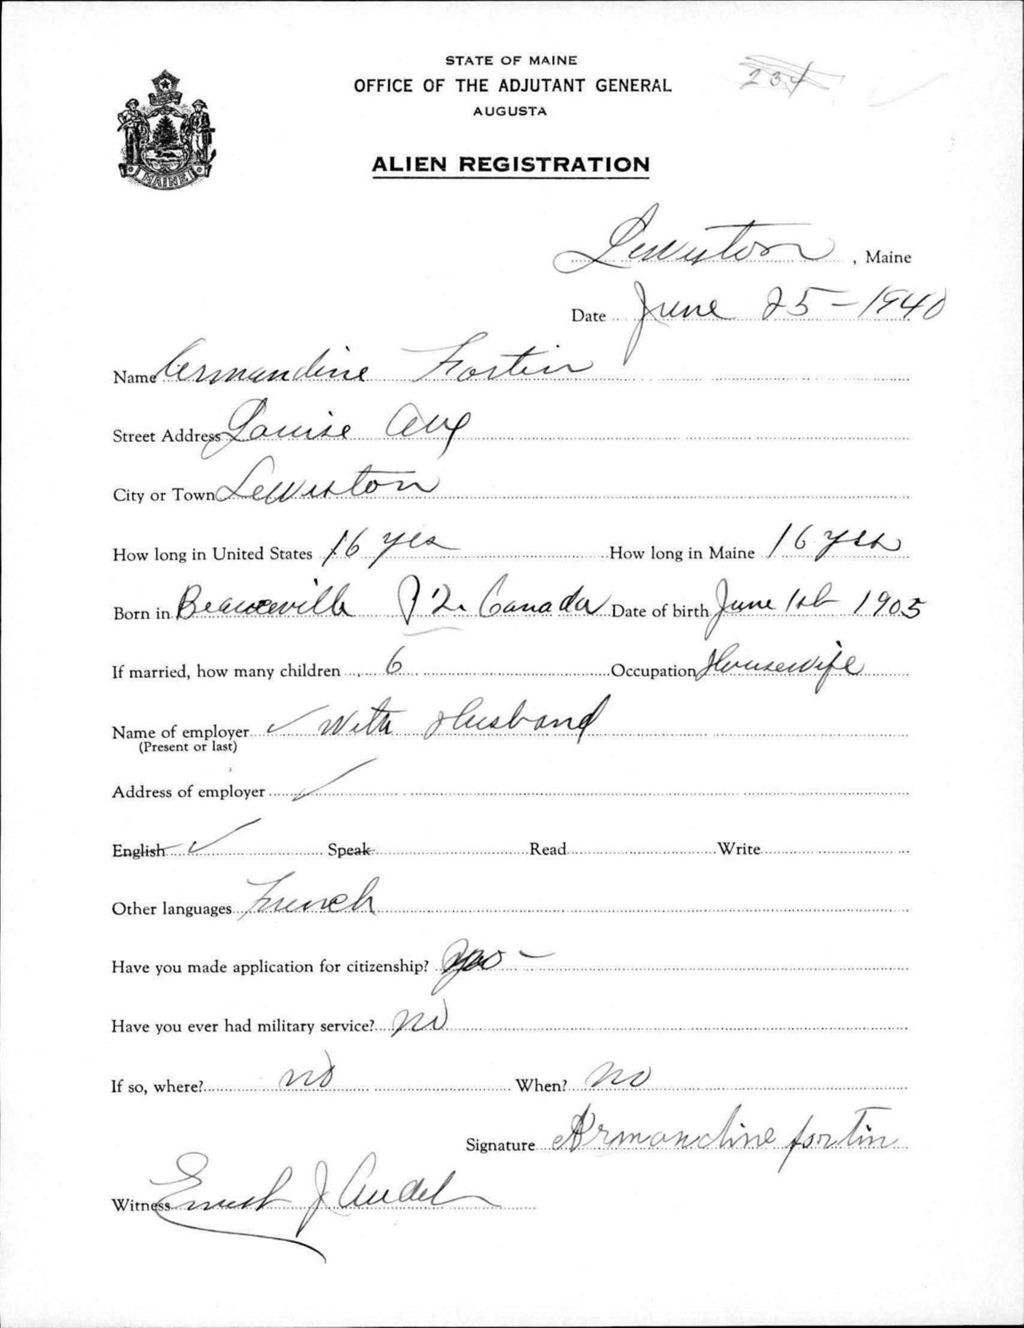 STATE OF MAINE
OFFICE OF THE ADJUTANT GENERAL
AUGUSTA
234
MAINE
ALIEN REGISTRATION
Lewiston, Maine
Date June 25-1940
Name Armandine Fortin
Street Address Louise Ave
City or Town Lewiston
How long in United States 16 yrs How long in Maine 16 yrs
Born in Beauceville P2. Canada Date of birth June 1905
If married, how many children 6 Occupation Housewife
Name of employer With Husband
(Present or last)
Address of employer
English Speak Read Write
Other languages French
Have you made application for citizenship? -
Have you ever had military service? no
If so, where? no When? no
Signature Armandine fortin
Witness Ernest J